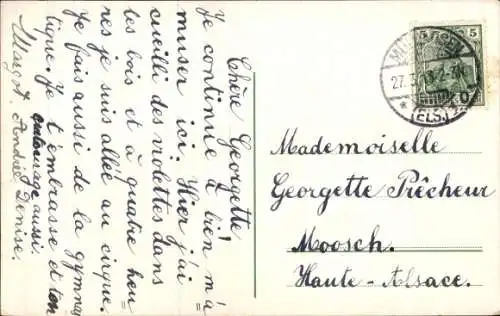 Chère Georgette!
Je continue à bien m'a=
muser ici. Hier j'ai
cueilli des violettes dans
les bois et à quatre heu=
res je suis allée au cirque.
Je fais aussi de la gymnas
tique. Je t'embrasse et ton
entourage aussi.
Margot. André Denise.
5 5
27.3
(ELS.)
Mademoiselle
Georgette Prêcheur
Moosch.
Haute-Alsace.